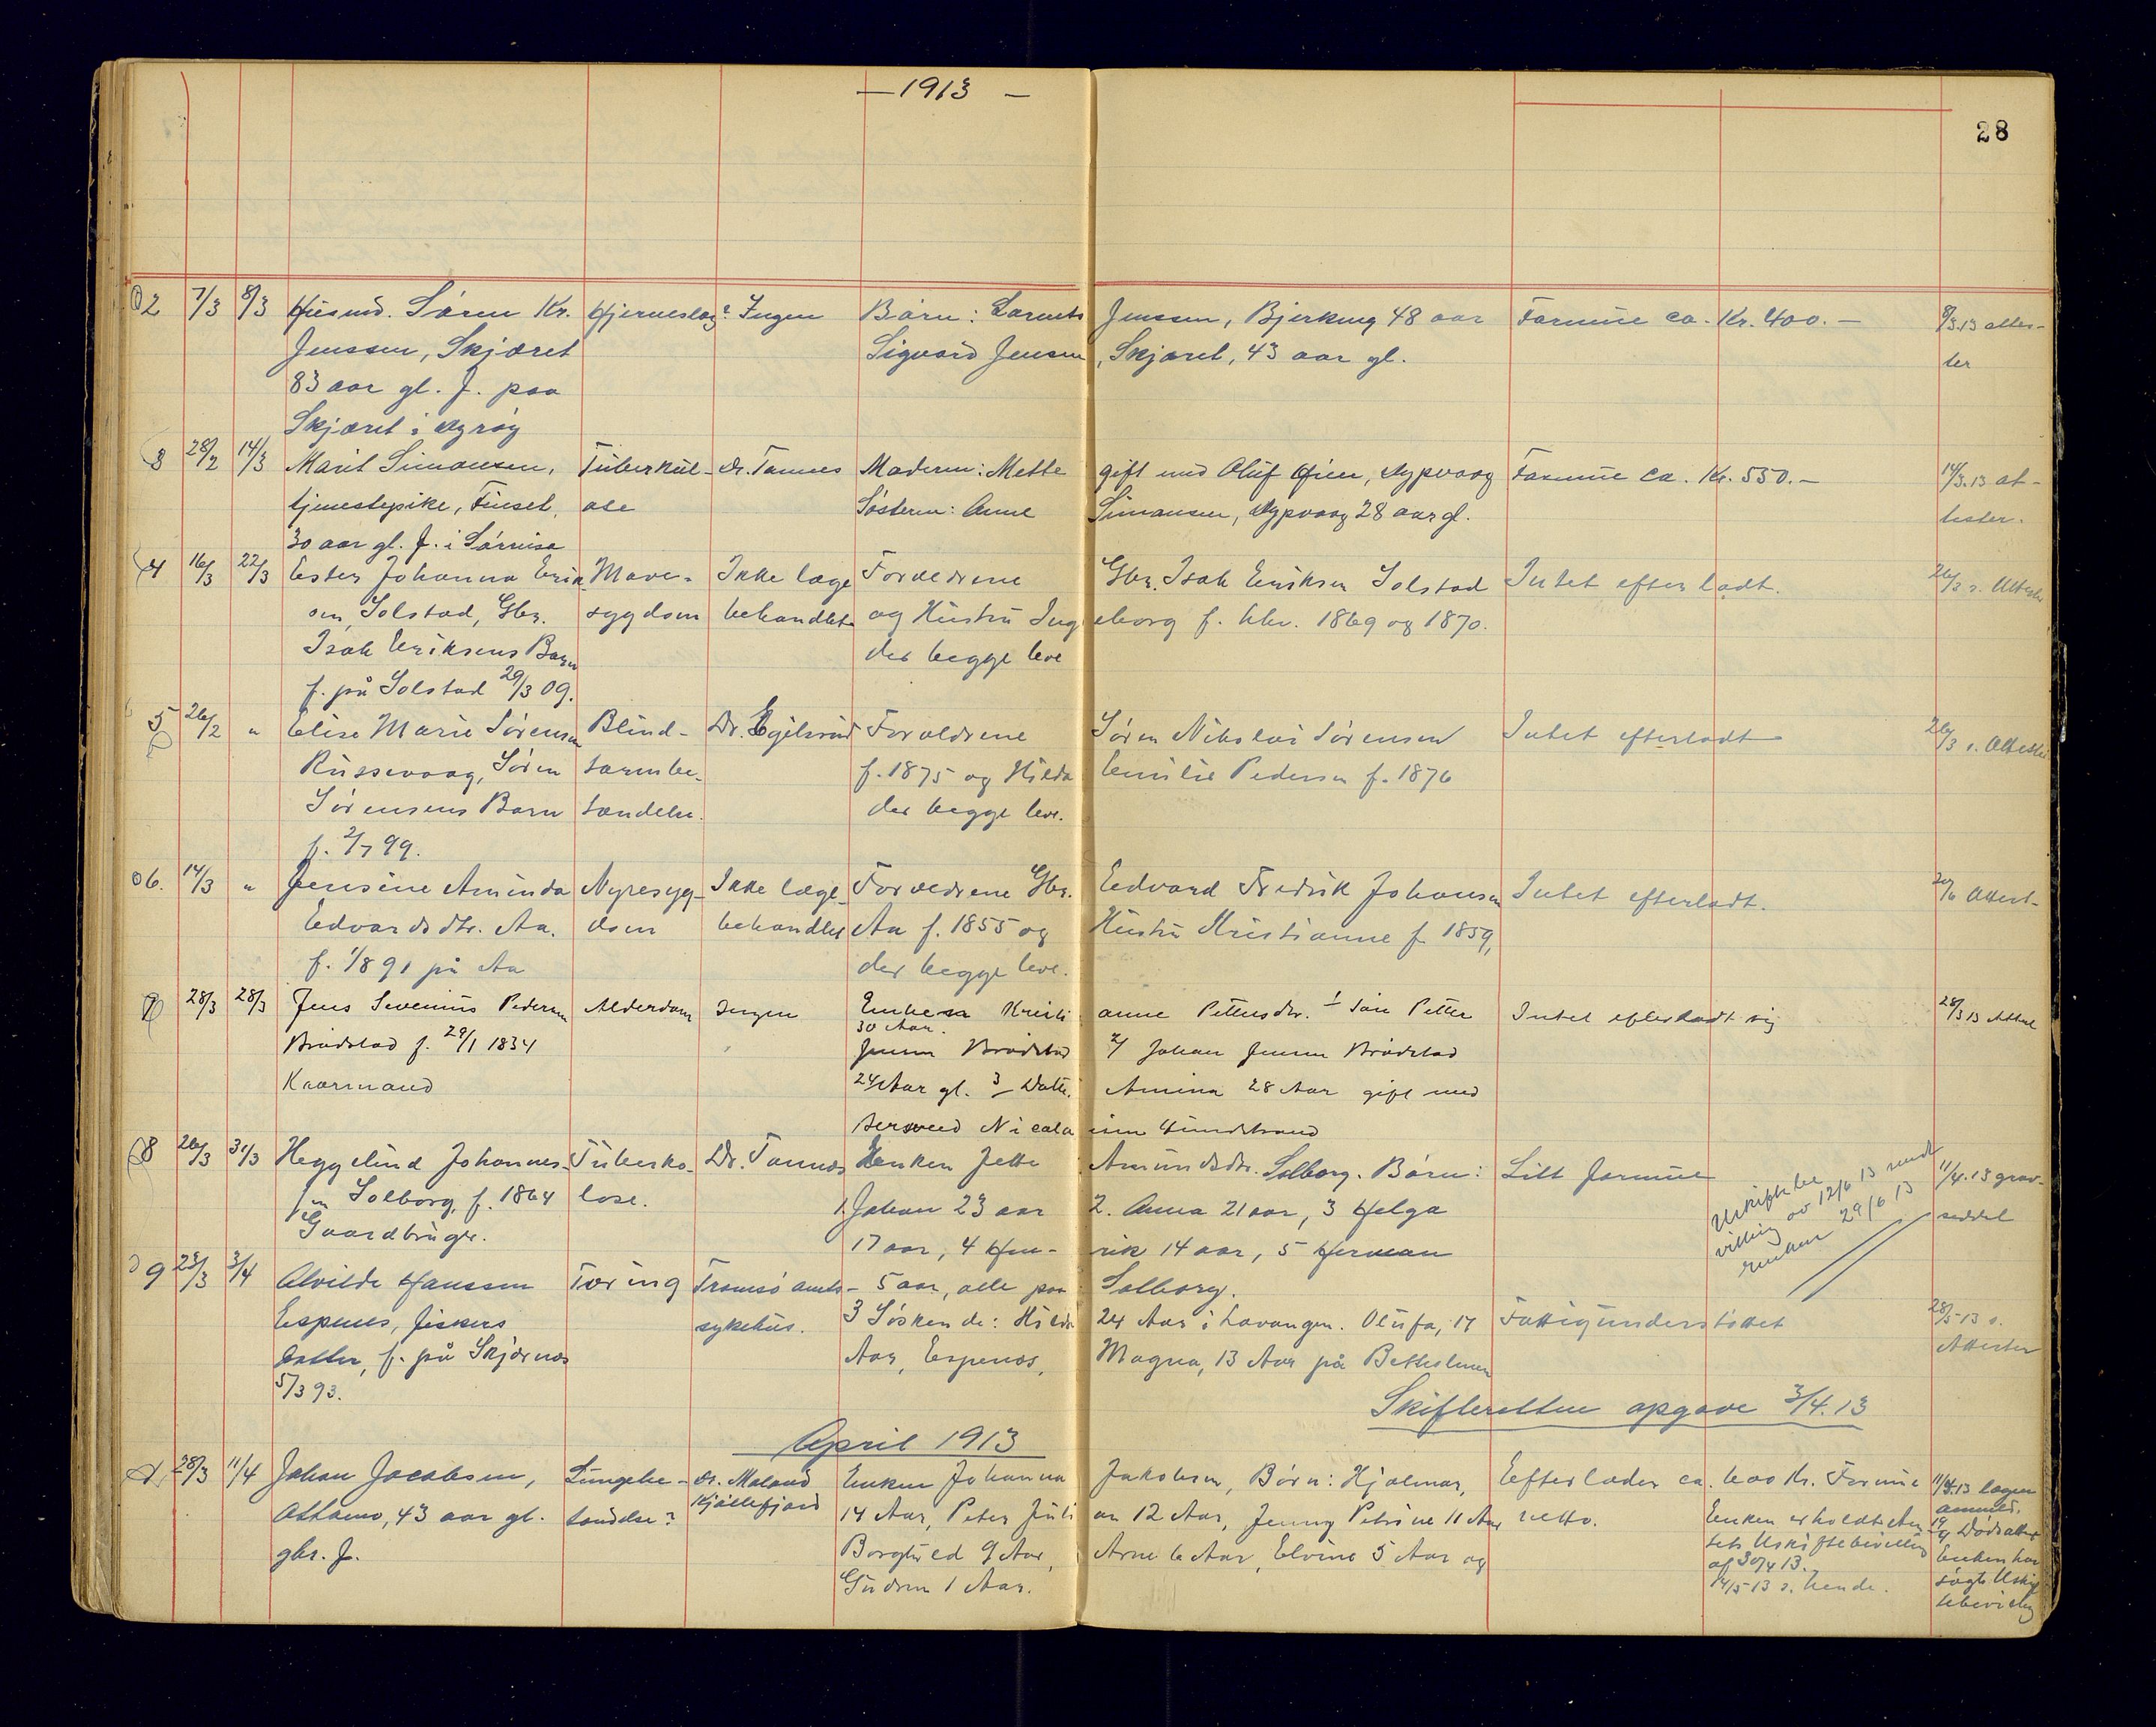 — 1913 —
28
2 7/3 8/3 Husmd. Søren Kr. Hjerneslag? Ingen Børn: Lorents Jenssen, Bjerkeng 48 aar Formue ca. Kr. 400.— 8/3.13 attes-
Jenssen, Skjæret Sigvard Jensen, Skjæret, 43 aar gl. ter
83 aar gl. f. paa
Skjæret i
3 28/2 14/3 Marit Simonsen, Tuberkul- dr. Tannes Moderen: Mette gift med Oluf Formue ca. Kr. 550.— 14/3.13 at-
tjenestepike, Finset, ose Søsteren: Anne Simonsen, 28 aar gl. tester.
30 aar gl. f. i Sørreisa
4 16/3 22/3 Ester Johanna Erik- Mave- Ikke læge Forældrene Gbr. Isak Eriksen Solstad Intet efterladt. 26/3 s. Attester
sen, Solstad, Gbr. sygdom behandlet og Hustru Ingeborg f. hhv. 1869 og 1870.
Isak Eriksens Barn der begge leve
f. på Solstad 29/3 09.
5 26/2 " Elise Marie Sørensen Blind- Dr. Egilsrud Forældrene Søren Nikolai Sørensen Intet efterladt 26/3 s. Attester
Russevaag, Søren tarmbe- f. 1875 og Hilda Emilie Pedersen f. 1876
Sørensens Barn tændelse. der begge leve.
f. 2/7 99.
6. 14/3 " Jensine Aminda Nyresyg- Ikke læge- Forældrene Gbr. Edvard Fredrik Johansen Intet efterladt. Attest-
Edvardsdtr. Aa. dom behandlet Aa f. 1855 og Hustru Kristianne f. 1859,
f. 1/8 91 på Aa der begge leve.
7 28/3 28/3 Jens Severinus Pedersen Alderdom Ingen Enken Kristianne Pettersdtr. 1/ Søn Petter Intet efterladt sig 28/3 13 Attest
30 Aar.
Brødstad f. 29/1 1834 Jensen Brødstad 2/ Johan Jensen Brødstad
Kaarmand 24 Aar gl. 3/ Datter Amina 28 Aar gift med
8 26/3 31/3 Heggelund Johannes- Tuberko- Dr. Tannes Enken Jette Amundsdtr. Solborg. Børn: Litt formue 11/4.13 grav-
sen Solborg, f. 1864 lose. 1. Johan 23 aar 2. Anna 21 aar, 3 Helga seddel
Gaardbruger. 17 aar, 4 Henrik 14 aar, 5 Herman
Uskiftebe
villing av 12/6 13 sendt
enken 29/6 13
9 23/3 3/4 Alvilde Hanssen Tæring Tromsø amts- 5 aar, alle paa Solborg.
Espenes, fiskers sykehus. 3 Søskende: Hilda 24 Aar i Lavangen. Olufa, 17 Fattigunderstøttet 28/5 13 s.
datter, f. på Skjærnes Aar, Espenes, Magna, 13 Aar på Bettholmen Attester
5/3 93.
Skifteretten opgave 3/4.13
April 1913
1. 28/3 11/4 Johan Jacobsen, Lungebe- dr. Moland Enken Johanna Jakobsen, Børn: Hjalmar, Efterlader ca. 600 Kr. Formue 11/4.13 lagen
Kjøllefjord
43 aar gl. tændelse? 14 Aar, Peter Julian 12 Aar, Jenny Petrine 11 Aar netto. Enken erholdt Am- anmeld.
gbr. f. Borghild 9 Aar, Arne 6 Aar, Elvine 5 Aar og tets Uskiftebevilling Dødsattest
Gudrun 1 Aar. af 30/4 13. Enken har
14/5 13 s. hende. søgt Uskif
tebevilling